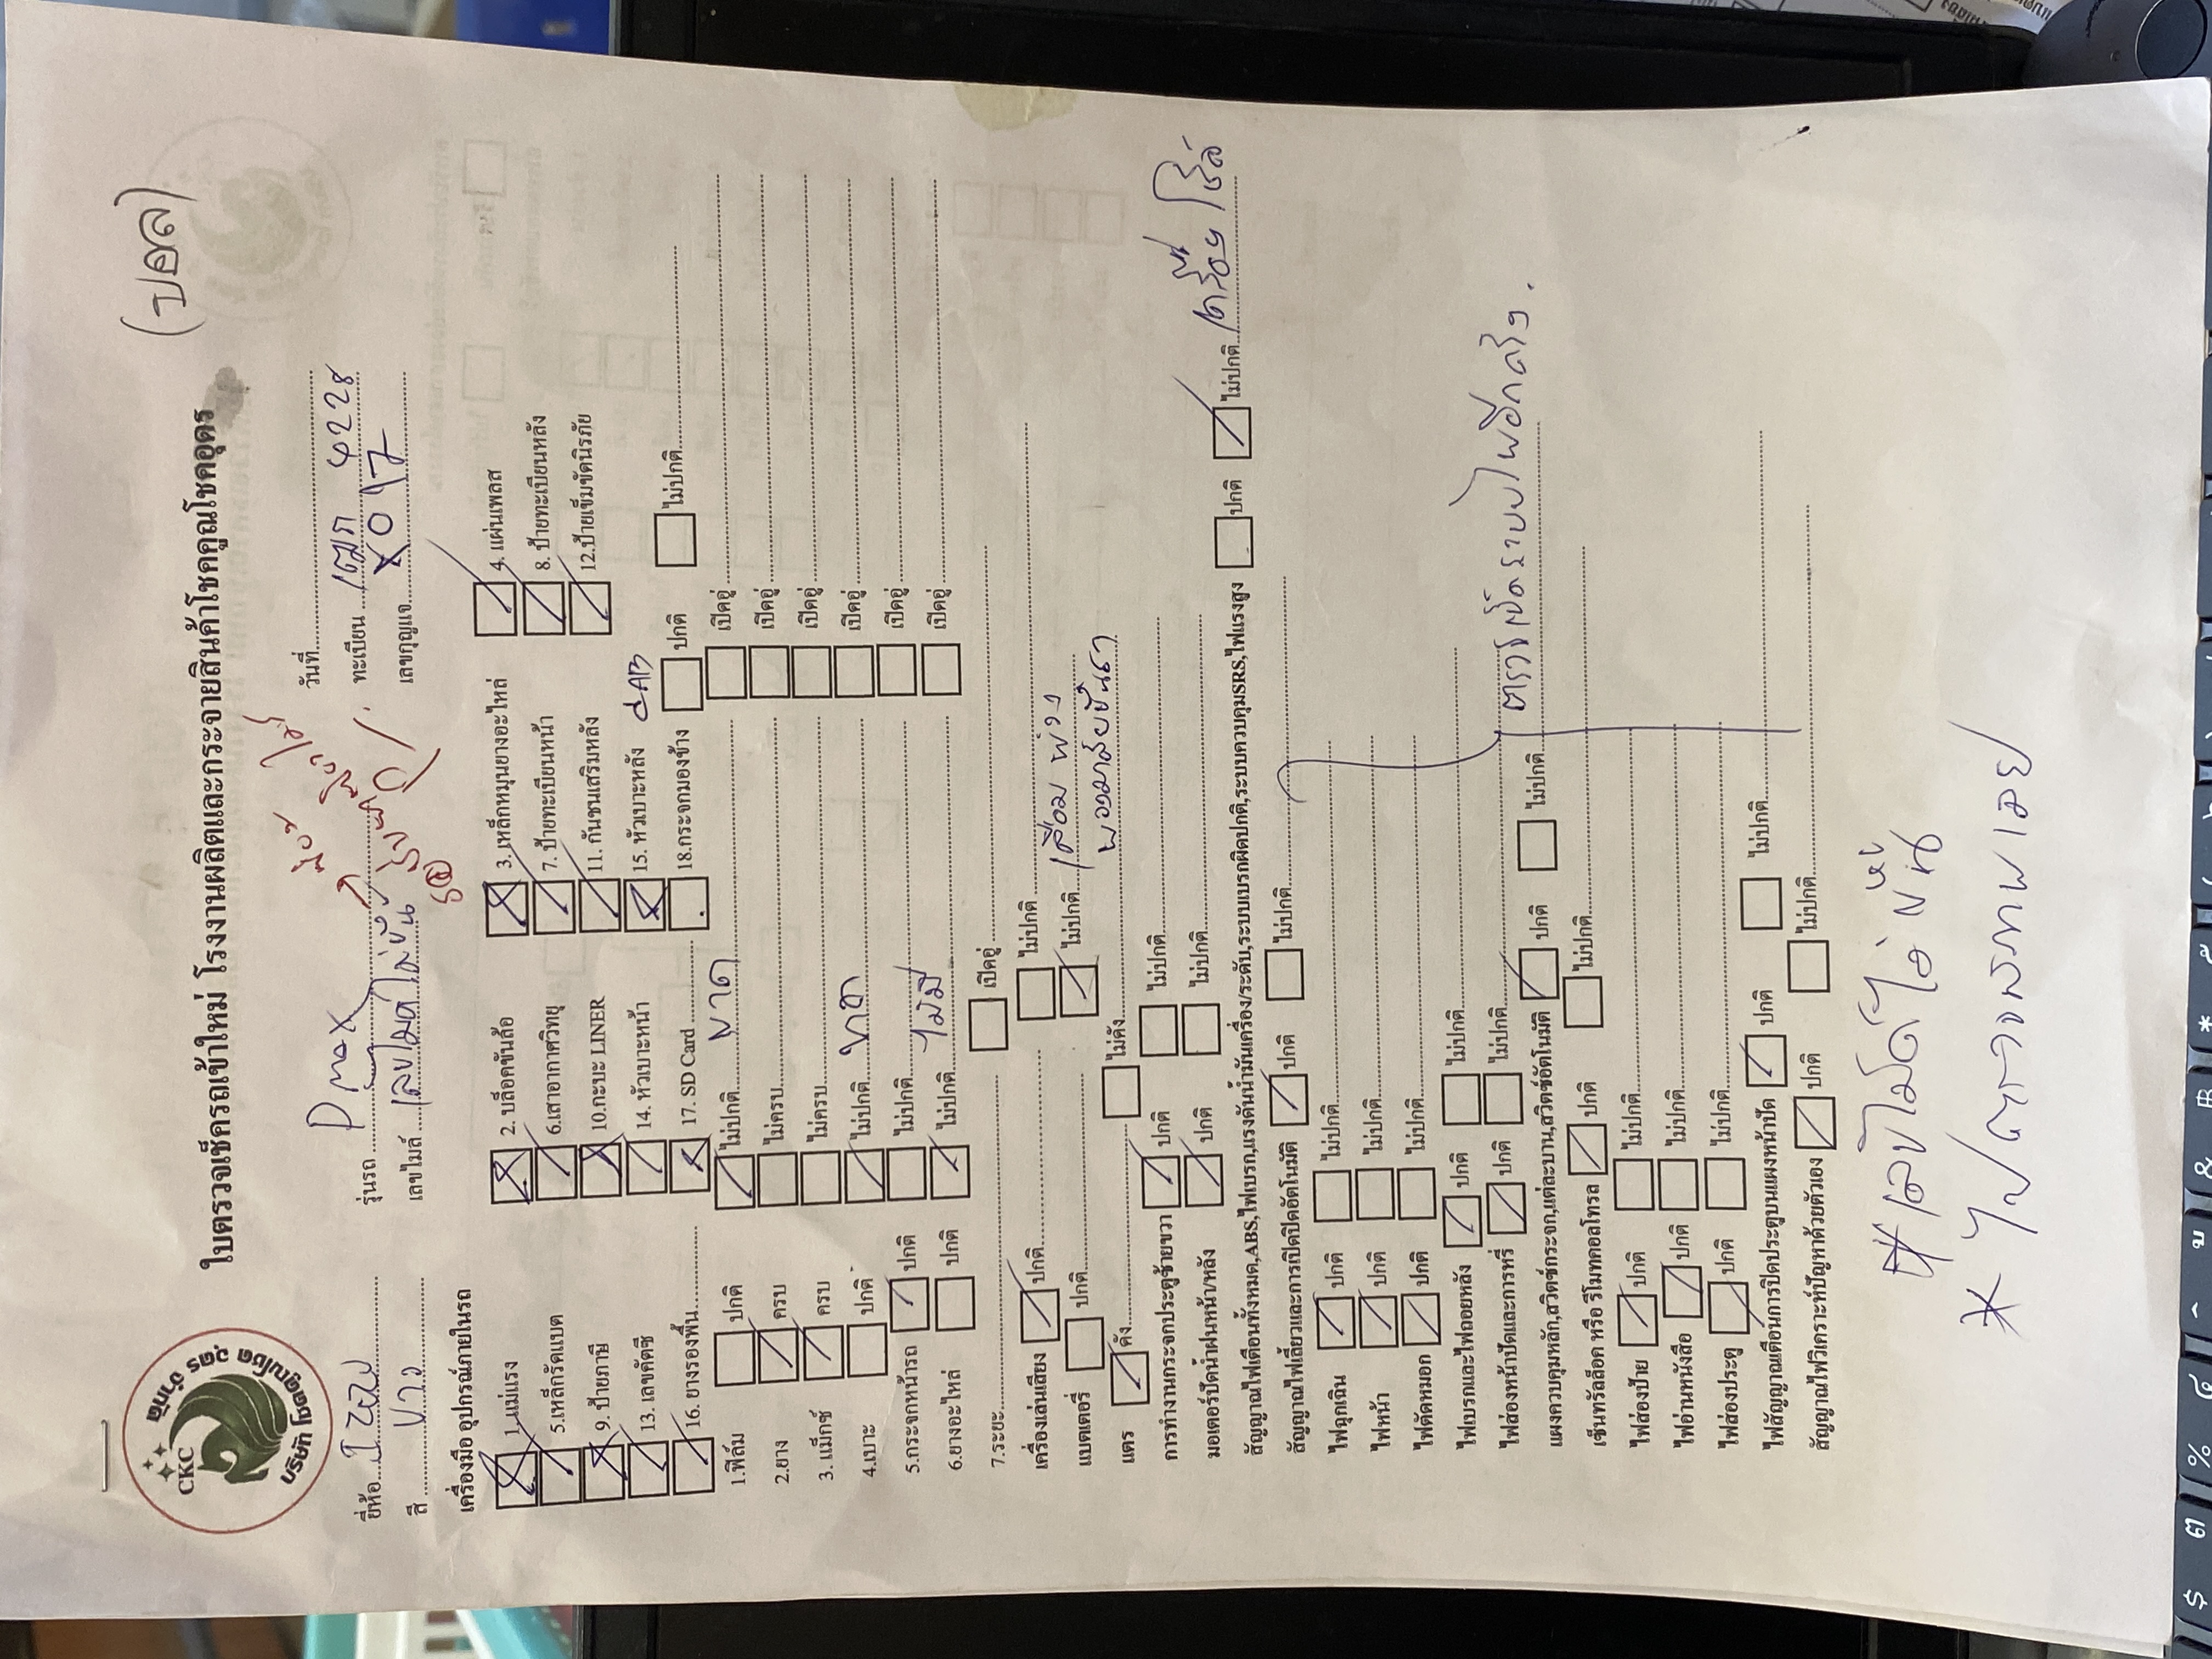 (ปอล)
CKC
บริษัท โชคคูณโชค อุดร จำกัด
ใบตรวจเช็ครถเข้าใหม่ โรงงานผลิตและกระจายสินค้าโชคคูณโชคอุดร
ยี่ห้อ รุ่นรถ Dmax วันที่
สี ขาว เลขไมล์ เลขไมล์ไม่ขึ้น ทะเบียน เลขกุญแจ
เครื่องมือ อุปกรณ์ภายในรถ
1.แม่แรง 2. บล็อคขันล้อ 3. เหล็กหมุนยางอะไหล่ 4. แผ่นเพลส
5.เหล็กรัดแบต 6.เสาอากาศวิทยุ 7. ป้ายทะเบียนหน้า 8. ป้ายทะเบียนหลัง
9. ป้ายภาษี 10.กะบะ LINER 11. กันชนเสริมหลัง 12.ป้ายเข็มขัดนิรภัย
13. เลขคัตซี 14. หัวเบาะหน้า 15. หัวเบาะหลัง CAB
16. ยางรองพื้น 17. SD Card 18.กระจกมองข้าง ปกติ ไม่ปกติ
1.ฟิล์ม ปกติ ไม่ปกติ ขาด เปิดอู่
2.ยาง ครบ ไม่ครบ เปิดอู่
3. แม็กซ์ ครบ ไม่ครบ เปิดอู่
4.เบาะ ปกติ ไม่ปกติ ขาด เปิดอู่
5.กระจกหน้ารถ ปกติ ไม่ปกติ เปิดอู่
6.ยางอะไหล่ ปกติ ไม่ปกติ ไม่มี เปิดอู่
7.ระยะ เปิดอู่
เครื่องเล่นเสียง ปกติ ไม่ปกติ
แบตเตอรี่ ปกติ ไม่ปกติ เสื่อม พ่วง
แตร ดัง ไม่ดัง พวงมาลัยขึ้นเงา
การทำงานกระจกประตูซ้ายขวา ปกติ ไม่ปกติ
มอเตอร์ปัดน้ำฝนหน้า/หลัง ปกติ ไม่ปกติ
สัญญาณไฟเตือนทั้งหมด,ABS,ไฟเบรก,แรงดันน้ำมันเครื่อง/ระดับ,ระบบเบรกผิดปกติ,ระบบควบคุมSRS,ไฟแรงสูง ปกติ ไม่ปกติ เครื่องโชว์
สัญญาณไฟเลี้ยวและการเปิดปิดอัตโนมัติ ปกติ ไม่ปกติ
ไฟฉุกเฉิน ปกติ ไม่ปกติ
ไฟหน้า ปกติ ไม่ปกติ
ไฟตัดหมอก ปกติ ไม่ปกติ
ไฟเบรกและไฟถอยหลัง ปกติ ไม่ปกติ
ไฟส่องหน้าปัดและการหรี่ ปกติ ไม่ปกติ ตรวจเช็คระบบไฟอีกครั้ง.
แผงควบคุมหลัก,สวิตซ์กระจก,แต่ละบาน,สวิตซ์อัตโนมัติ ปกติ ไม่ปกติ
เซ็นทรัลล็อค หรือ รีโมทคอลโทรล ปกติ ไม่ปกติ
ไฟส่องป้าย ปกติ ไม่ปกติ
ไฟอ่านหนังสือ ปกติ ไม่ปกติ
ไฟส่องประตู ปกติ ไม่ปกติ
ไฟสัญญาณเตือนการปิดประตูบนแผงหน้าปัด ปกติ ไม่ปกติ
สัญญาณไฟวิเคราะห์ปัญหาด้วยตัวเอง ปกติ ไม่ปกติ
# เลขไมล์ไม่ขึ้น